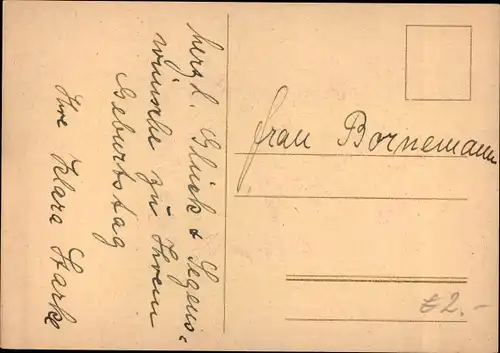 herzl. Glück & Segens-
wünsche zu Ihrem
Geburtstag
Ihre Klara Starke
Frau Bornemann
€ 2.-